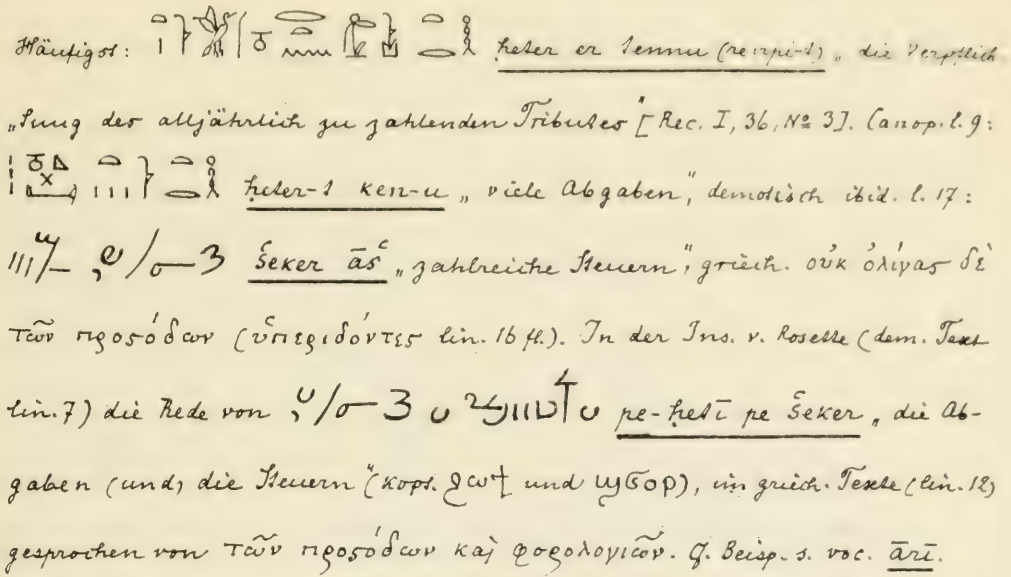 Häufigst: ḥeter er tennu (renpi-t) „die Verpflich
„tung des alljährlich zu zahlenden Tributes" [Rec. I, 36, Nº 3]. Canop. l. 9:
ḥeter-t ken-u „viele Abgaben", demotisch ibid. l. 17:
šeker āš „zahlreiche Steuern", griech. οὐκ ὀλίγας δὲ
τῶν προσόδων (ὑπεριδόντες lin. 16 fl.). In der Ins. v. Rosette (dem. Text
lin. 7) die Rede von pe-ḥetī pe šeker „die Ab-
gaben (und) die Steuern" (kopt. ϩωϯ und ϣϭορ), im griech. Texte (lin. 12)
gesprochen von τῶν προσόδων καὶ φορολογιῶν. Cf. Beisp. s. voc. ārī.